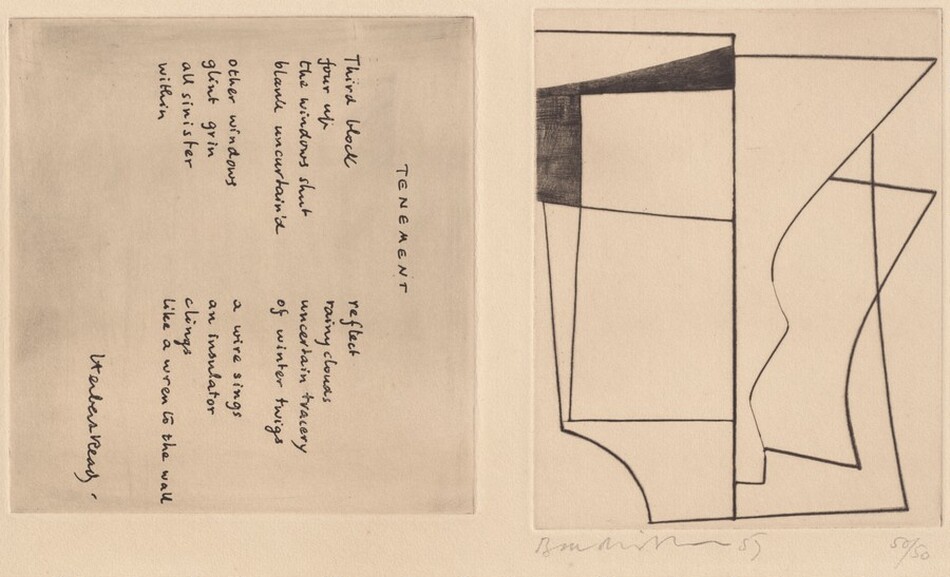 TENEMENT
Third block
four up
the windows shut
blank uncurtain'd
other windows
glint grin
all sinister
within
reflect
rainy clouds
uncertain tracery
of winter twigs
a wire sings
an insulator
clings
like a wren to the wall
Herbert Read -
50/50